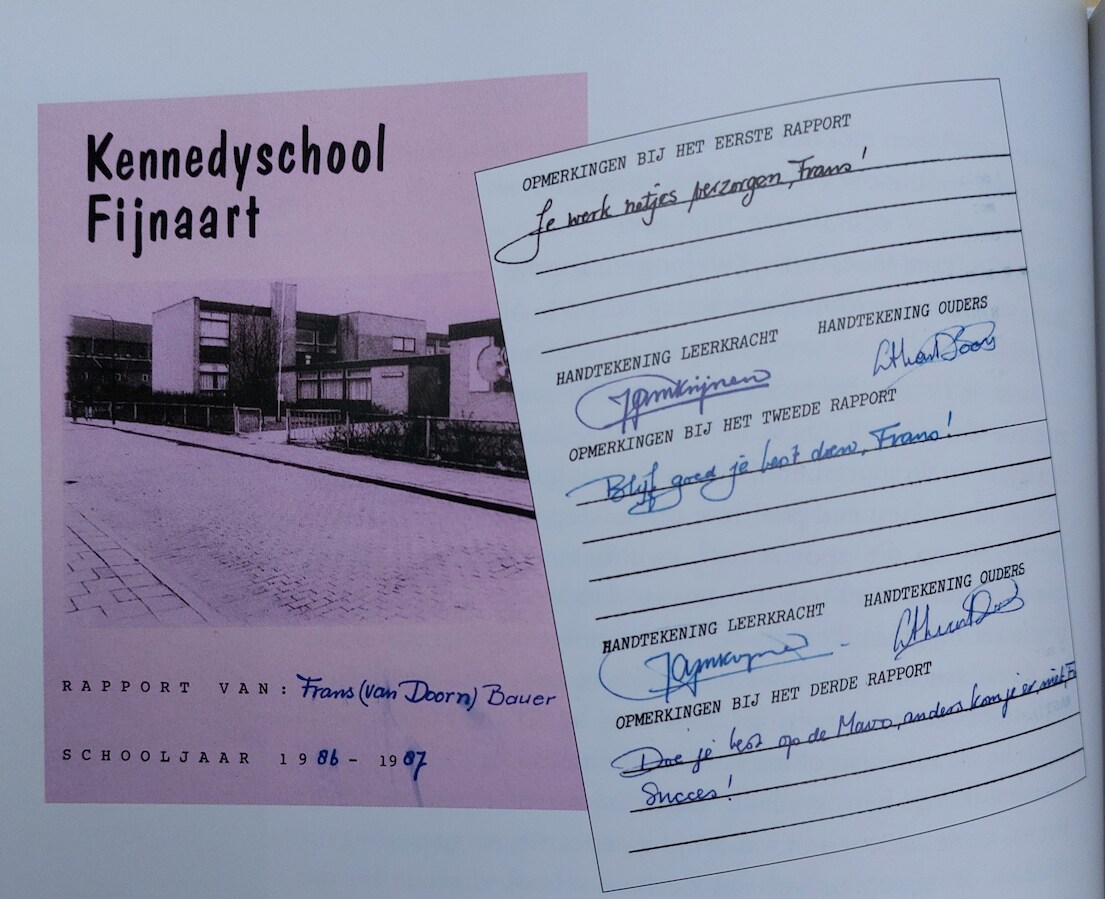 Kennedyschool
Fijnaart
RAPPORT VAN: Frans (van Doorn) Bauer
SCHOOLJAAR 1986 - 1987
OPMERKINGEN BIJ HET EERSTE RAPPORT
Je werk netjes verzorgen, Frans!
HANDTEKENING LEERKRACHT HANDTEKENING OUDERS
OPMERKINGEN BIJ HET TWEEDE RAPPORT
Blijf goed je best doen, Frans!
HANDTEKENING LEERKRACHT HANDTEKENING OUDERS
OPMERKINGEN BIJ HET DERDE RAPPORT
Doe je best op de Mavo, anders kom je er niet
Succes!